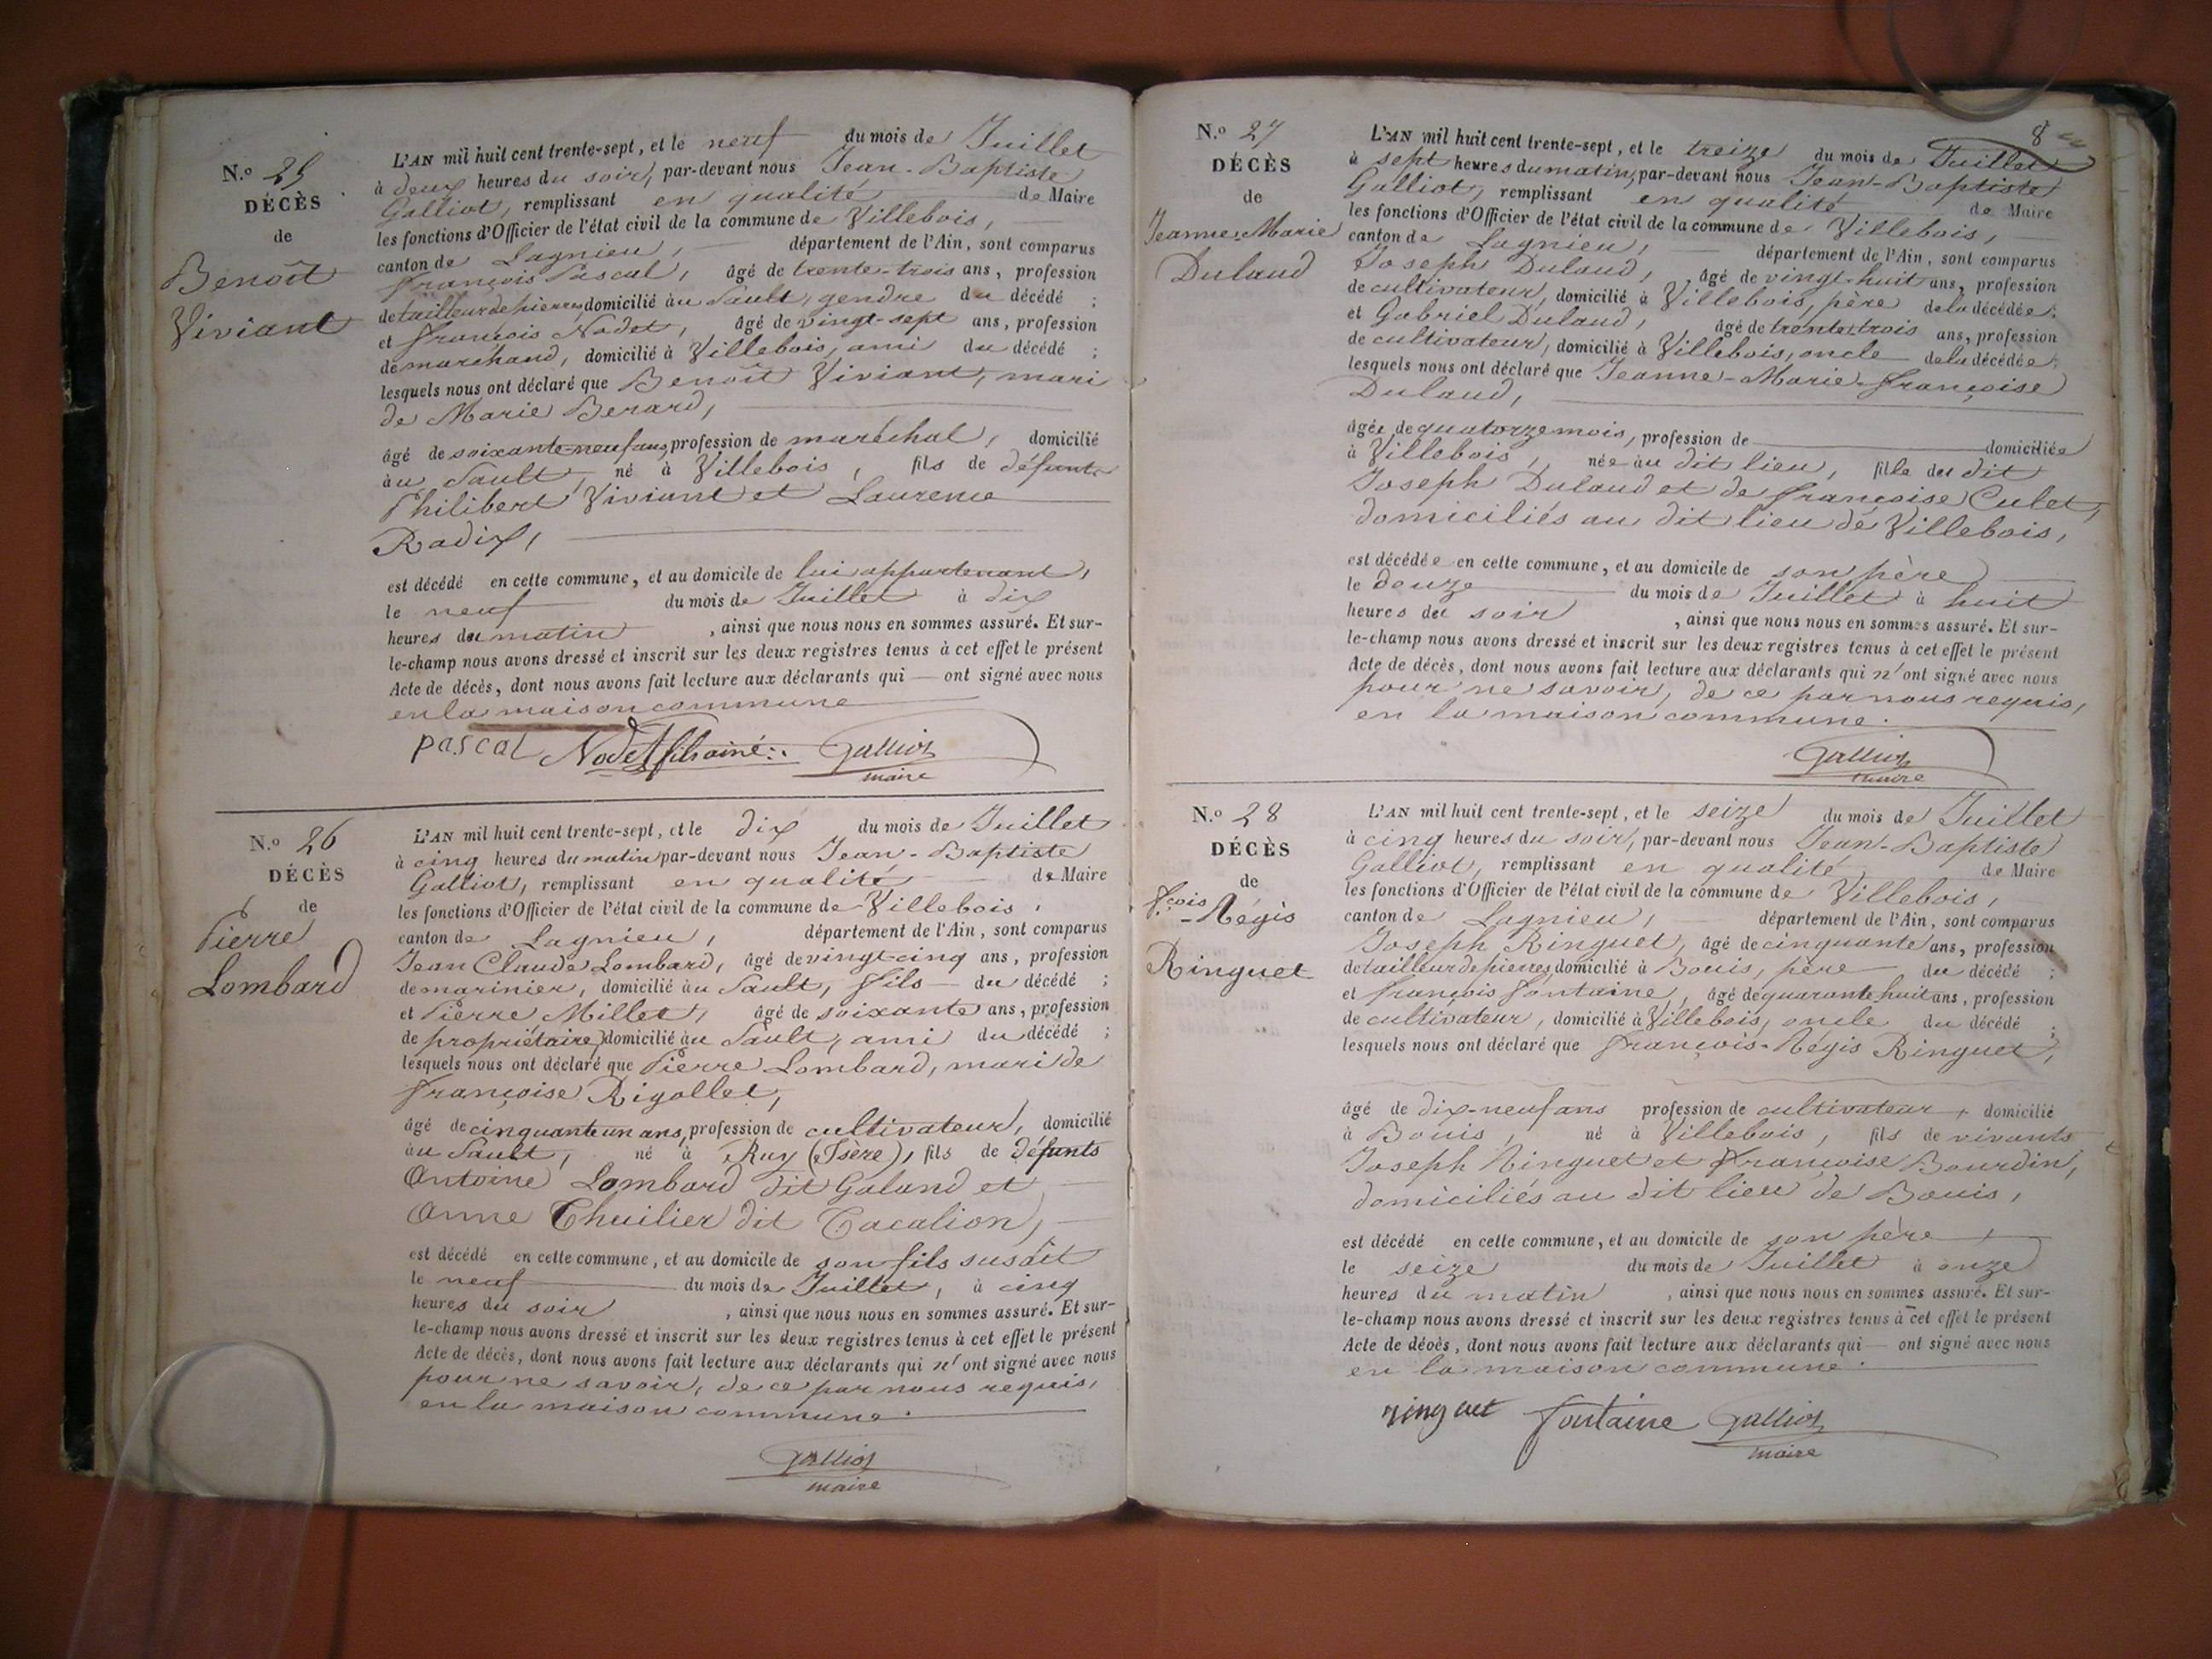 N.o 25
DÉCÈS
de
Benoît
Viviant
L'AN mil huit cent trente-sept, et le neuf du mois de Juillet
à deux heures du soir, par-devant nous Jean-Baptiste
Galliot, remplissant en qualité de Maire
les fonctions d'Officier de l'état civil de la commune de Villebois,
canton de Lagnieu, département de l'Ain, sont comparus
François Pascal, âgé de trente-trois ans, profession
de tailleur de pierres, domicilié au Sault, gendre du décédé ;
et François Nodet, âgé de vingt-sept ans, profession
de marchand, domicilié à Villebois, ami du décédé ;
lesquels nous ont déclaré que Benoît Viviant, mari
de Marie Berard,
âgé de soixante-neuf ans, profession de maréchal, domicilié
au Sault, né à Villebois, fils de défunts
Philibert Viviant et Laurence
Radix,
est décédé en cette commune, et au domicile de lui appartenant,
le neuf du mois de Juillet à dix
heures du matin, ainsi que nous nous en sommes assuré. Et sur-
le-champ nous avons dressé et inscrit sur les deux registres tenus à cet effet le présent
Acte de décès, dont nous avons fait lecture aux déclarants qui — ont signé avec nous
en la maison commune
pascal Nodet fils ainé Galliot
maire
N.o 26
DÉCÈS
de
Pierre
Lombard
L'AN mil huit cent trente-sept, et le dix du mois de Juillet
à cinq heures du matin par-devant nous Jean-Baptiste
Galliot, remplissant en qualité de Maire
les fonctions d'Officier de l'état civil de la commune de Villebois,
canton de Lagnieu, département de l'Ain, sont comparus
Jean Claude Lombard, âgé de vingt-cinq ans, profession
de marinier, domicilié au Sault, fils du décédé ;
et Pierre Millet, âgé de soixante ans, profession
de propriétaire, domicilié au Sault, ami du décédé ;
lesquels nous ont déclaré que Pierre Lombard, mari de
Françoise Rigollet,
âgé de cinquante un ans, profession de cultivateur, domicilié
au Sault, né à Ruy (Isère), fils de défunts
Antoine Lombard dit Galand et
Anne Thuilier dit Cacalion,
est décédé en cette commune, et au domicile de son fils susdit
le neuf du mois de Juillet, à cinq
heures du soir, ainsi que nous nous en sommes assuré. Et sur-
le-champ nous avons dressé et inscrit sur les deux registres tenus à cet effet le présent
Acte de décès, dont nous avons fait lecture aux déclarants qui n'ont signé avec nous
pour ne savoir, de ce par nous requis,
en la maison commune.
Galliot
maire
8
N.o 27
DÉCÈS
de
Jeanne-Marie
Dulaud
L'AN mil huit cent trente-sept, et le treize du mois de Juillet
à sept heures du matin, par-devant nous Jean-Baptiste
Galliot, remplissant en qualité de Maire
les fonctions d'Officier de l'état civil de la commune de Villebois,
canton de Lagnieu, département de l'Ain, sont comparus
Joseph Dulaud, âgé de vingt-huit ans, profession
de cultivateur, domicilié à Villebois, père de la décédée ;
et Gabriel Dulaud, âgé de trente-trois ans, profession
de cultivateur, domicilié à Villebois, oncle de la décédée ;
lesquels nous ont déclaré que Jeanne-Marie-Françoise
Dulaud,
âgée de quatorze mois, profession de domiciliée
à Villebois, née au dit lieu, fille du dit
Joseph Dulaud et de Françoise Culet,
domiciliés au dit lieu de Villebois,
est décédée en cette commune, et au domicile de son père
le douze du mois de Juillet à huit
heures du soir, ainsi que nous nous en sommes assuré. Et sur-
le-champ nous avons dressé et inscrit sur les deux registres tenus à cet effet le présent
Acte de décès, dont nous avons fait lecture aux déclarants qui n'ont signé avec nous
pour ne savoir, de ce par nous requis,
en la maison commune.
Galliot
maire
N.o 28
DÉCÈS
de
Fçois
-Régis
Ringuet
L'AN mil huit cent trente-sept, et le seize du mois de Juillet
à cinq heures du soir, par-devant nous Jean-Baptiste
Galliot, remplissant en qualité de Maire
les fonctions d'Officier de l'état civil de la commune de Villebois,
canton de Lagnieu, département de l'Ain, sont comparus
Joseph Ringuet, âgé de cinquante ans, profession
de tailleur de pierres, domicilié à Bouis, père du décédé ;
et François Fontaine, âgé de quarante huit ans, profession
de cultivateur, domicilié à Villebois, oncle du décédé ;
lesquels nous ont déclaré que François-Régis Ringuet,
âgé de dix-neuf ans profession de cultivateur, domicilié
à Bouis, né à Villebois, fils de vivants
Joseph Ringuet et Françoise Bourdin,
domiciliés au dit lieu de Bouis,
est décédé en cette commune, et au domicile de son père
le seize du mois de Juillet à onze
heures du matin, ainsi que nous nous en sommes assuré. Et sur-
le-champ nous avons dressé et inscrit sur les deux registres tenus à cet effet le présent
Acte de décès, dont nous avons fait lecture aux déclarants qui — ont signé avec nous
en la maison commune.
ringuet fontaine Galliot
maire